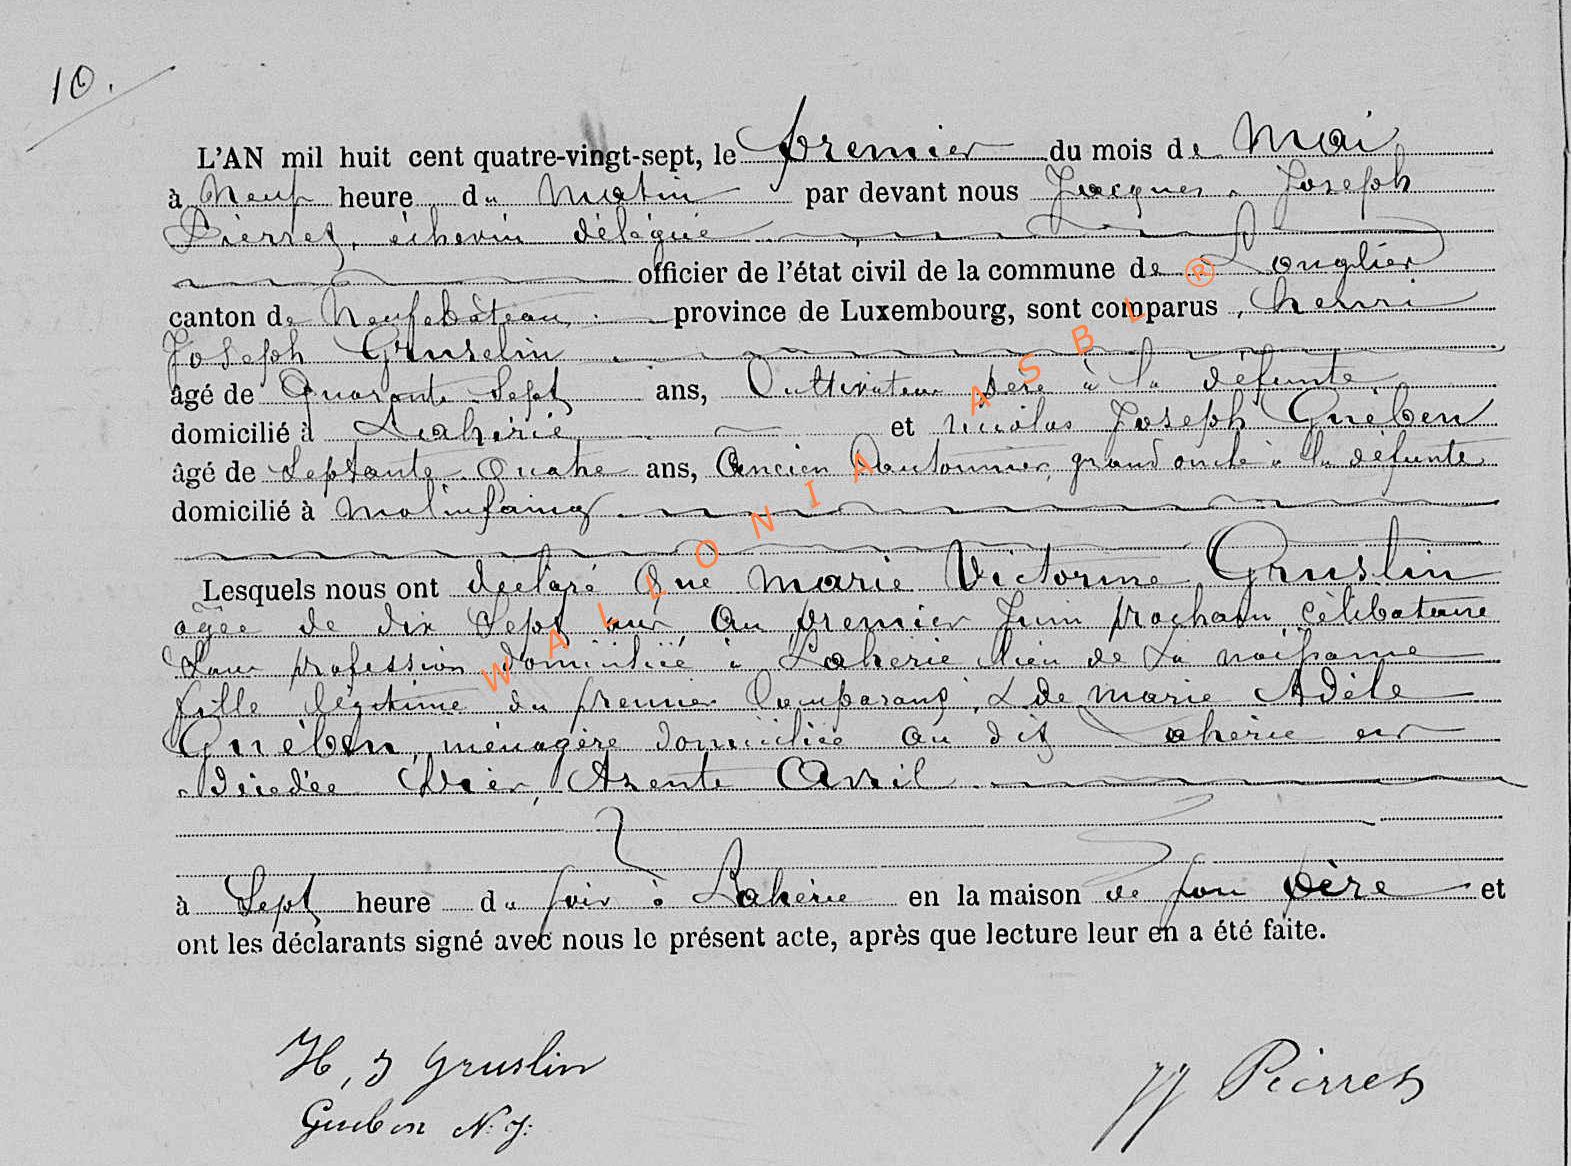 10.
L'AN mil huit cent quatre-vingt-sept, le premier du mois de Mai
à Neuf heure du Matin par devant nous Jacques Joseph
Pierret, échevin délégué
officier de l'état civil de la commune de Longlier
canton de Neufchâteau province de Luxembourg, sont comparus, henri
Joseph Gruselin
âgé de Quarante Sept ans, Cultivateur père à la défunte
domicilié à Lahérie et nicolas Joseph Guében
âgé de Septante Quatre ans, Ancien Cantonnier, grand oncle à la défunte
domicilié à Molinfaing
Lesquels nous ont déclaré Que Marie Victorine Gruslin
agée de dix Sept ans au premier Juin prochain, célibataire
Sans profession domiciliée à Laherie lieu de sa naissance
fille légitime du premier Comparant, & de Marie Adèle
Guében, ménagère domiciliée au dit Laherie est
décédée hier, trente Avril
à Sept heure du soir à Laherie en la maison de son père et
ont les déclarants signé avec nous le présent acte, après que lecture leur en a été faite.
H, J Gruslin
Gueben N. J.
JJ Pierret
WALLONIA ASBL ®